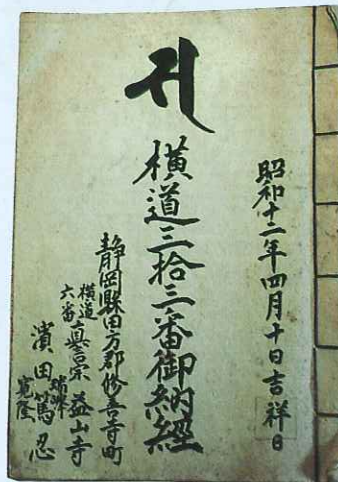 昭和十二年四月十日吉祥日
横道三拾三番御納經
静岡縣田方郡修善寺町
横道
六番
眞言宗 益山寺
濱田篤忍